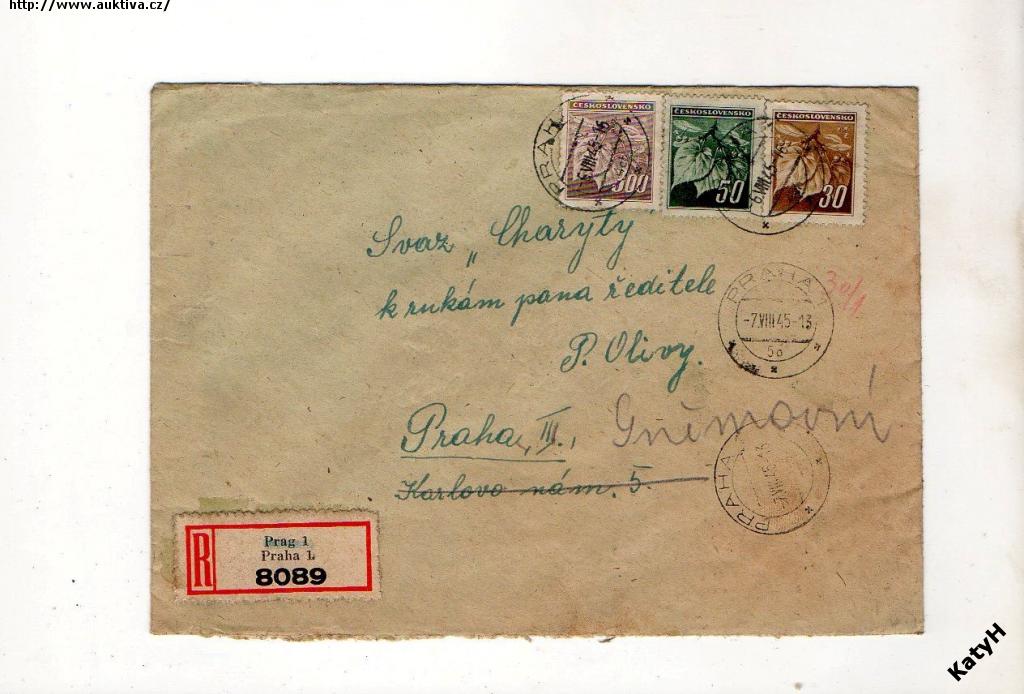 http://www.auktiva.cz/
ČESKOSLOVENSKO
300
ČESKOSLOVENSKO
50
ČESKOSLOVENSKO
30
PRAHA
6.VIII.45-16
6.VIII.45-16
Svaz „Charyty"
k rukám pana ředitele
P. Olivy.
Praha, III.,
Karlovo nám. 5.
30/1
PRAHA 1
-7.VIII.45-13
PRAHA
R
Prag 1
Praha 1.
8089
KatyH